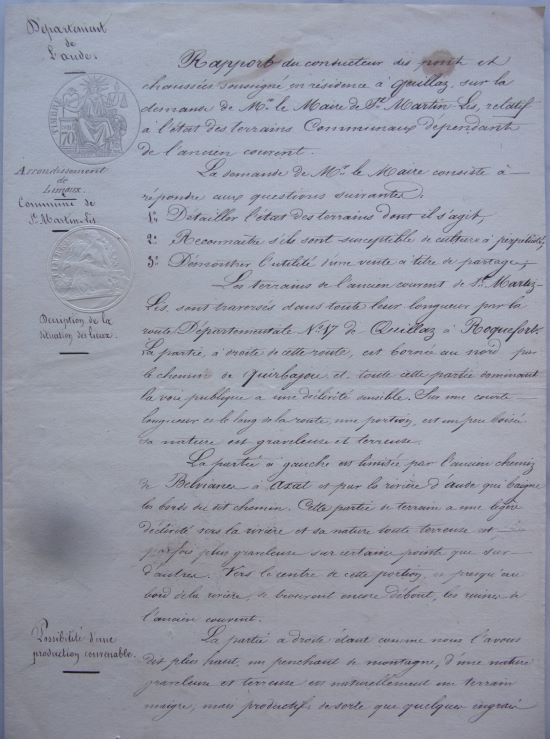 Département
de
L'aude.
TIMBRE
70
Arrondissement
de
Limoux.
Commune de
St. Martin-Lis.
Description de la
situation des lieux.
Rapport du conducteur des pont et
chaussées soussigné en résidence à Quillaz, sur la
demande de Mr. le Maire de St. Martin-Lis, relatif
à l'état des terrains Communaux dépendant
de l'ancien couvent.
La demande de Mr. le Maire consiste à
répondre aux questions suivantes:
1o. Détailler l'état des terrains dont il s'agit,
2o. Reconnaître s'ils sont susceptible de culture à perpétuité,
3o. Démontrer l'utilité d'une vente à titre de partage;
Les terrains de l'ancien couvent de St. Martin-
Lis, sont traversés dans toute leur longueur par la
route Départementale No. 17 de Quillaz à Roquefort.
La partie, à droite de cette route, est bornée au nord par
le chemin de Quirbajou et toute cette partie dominant
la voie publique a une déclivité sensible. Sur une courte
longueur et le long de la route, une portion, est un peu boisée
sa nature est graveleuse et terreuse.
La partie à gauche est limitée par l'ancien chemin
de Belvianes à Axat et par la rivière d'aude qui baigne
les bords du dit chemin. Cette partie de terrain a une légère
déclivité vers la rivière et sa nature toute terreuse est
parfois plus graveleuse sur certains points que sur
d'autres. Vers le centre de cette portion, et presqu'au
bord de la rivière, se trouvent encore debout, les ruines de
l'ancien couvent.
Possibilité d'une
production convenable.
La partie à droite étant comme nous l'avons
dit plus haut, un penchant de montagne, d'une nature
graveleuse et terreuse est naturellement un terrain
maigre, mais productif; de sorte que quelques engrais